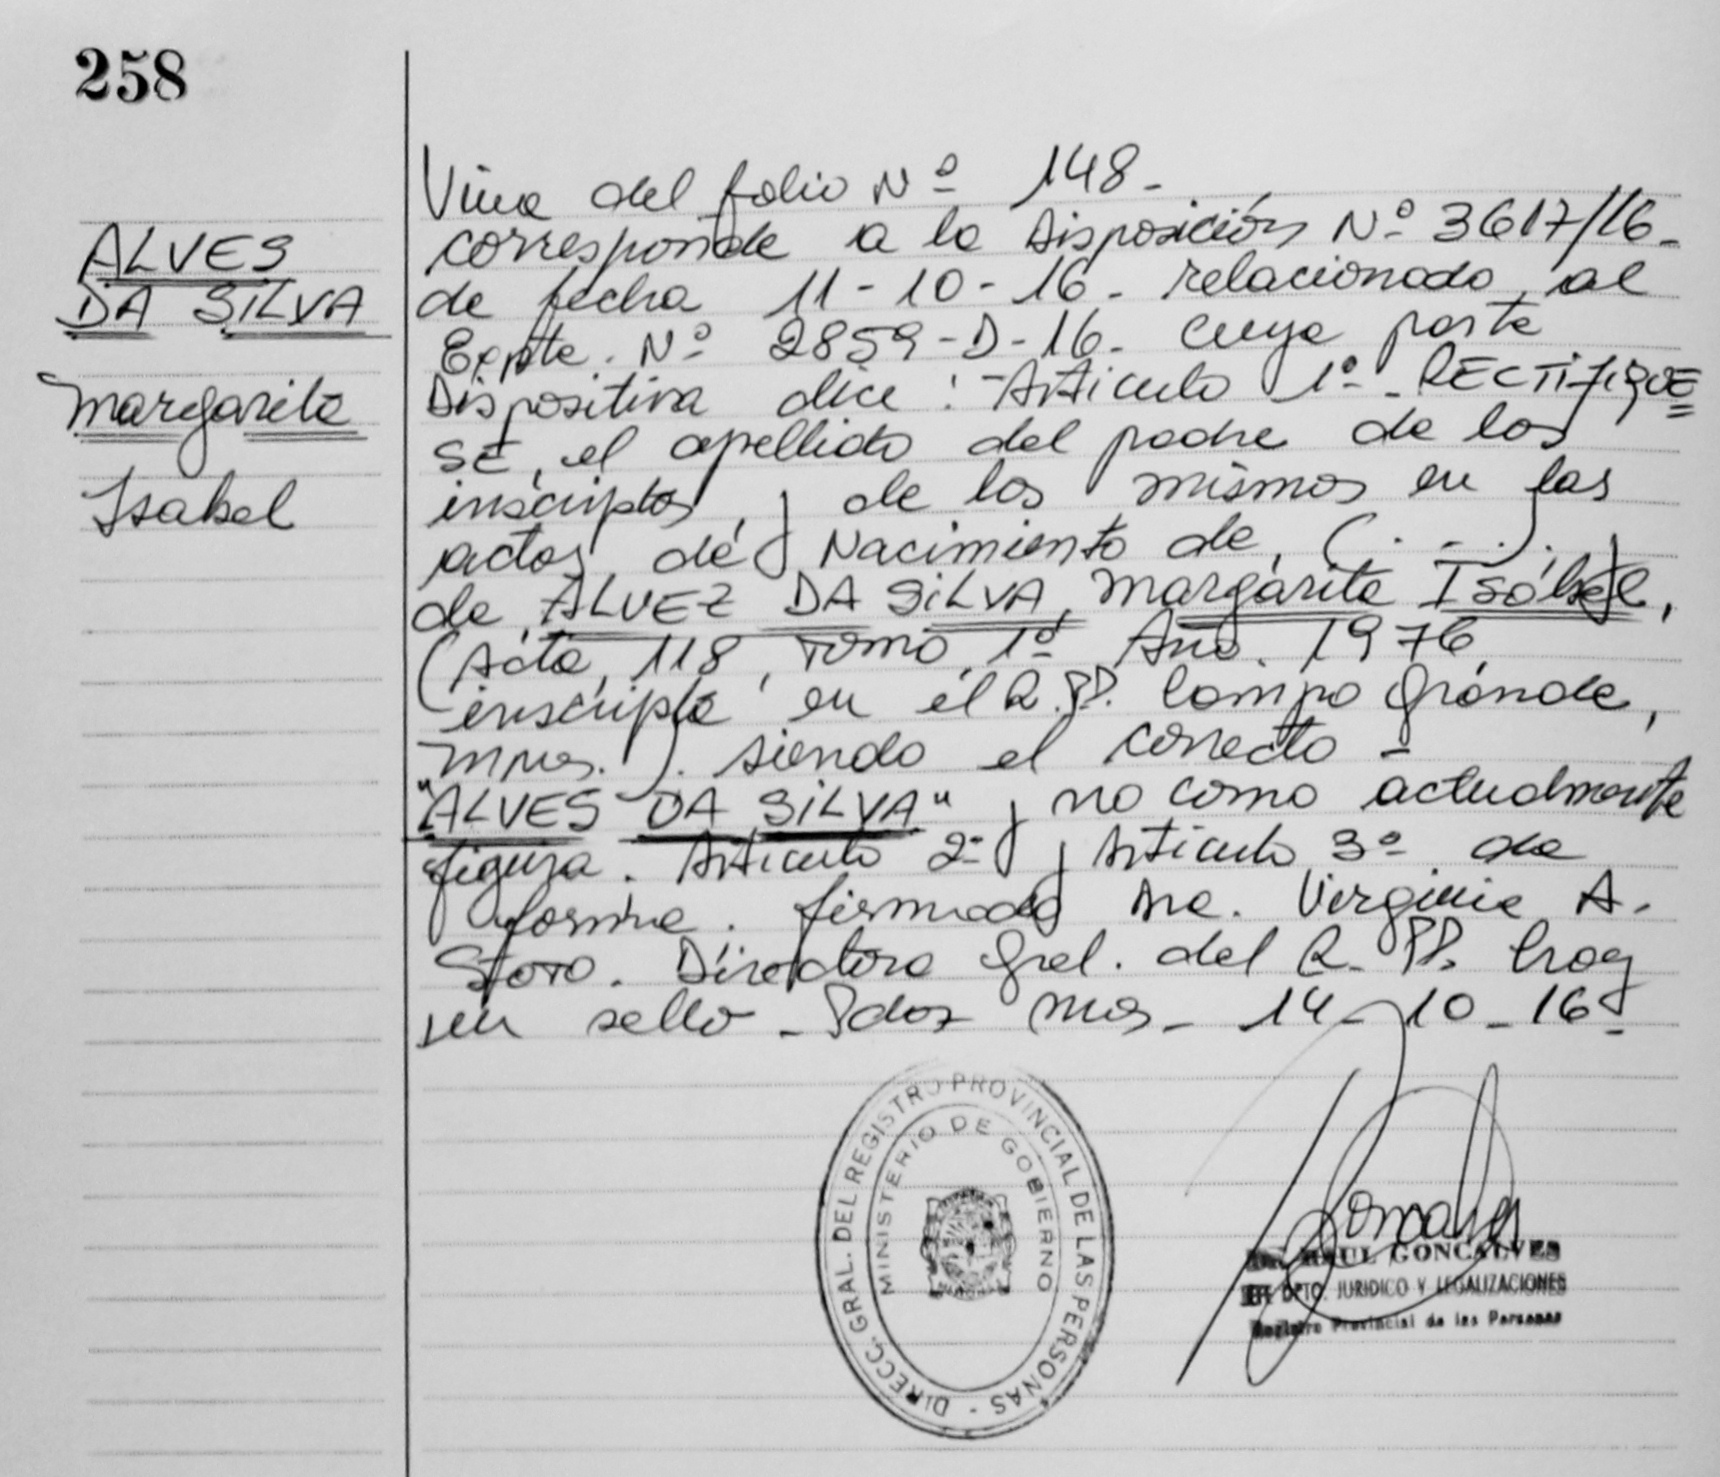 258
ALVES
DA SILVA
Margarita
Isabel
Viene del folio Nº 148-
corresponde a la Disposición Nº 3617/16-
de fecha 11-10-16- relacionado al
Expte. Nº 2859-D-16- cuya parte
Dispositiva dice: Artículo 1º- RECTIFIQUE
SE, el apellido del padre de los
inscriptos, y de los mismos en las
actas de Nacimiento de, (. - -). y
de ALVEZ DA SILVA, Margarita Isabel,
(Acta, 118, Tomo 1º Año. 1976
inscripta en el R.PP. Campo Grande,
Mnes.). siendo el correcto -
"ALVES DA SILVA" y no como actualmente
figura. Artículo 2º y Artículo 3º de
forma. firmado Dra. Virginia A.
Soto. Directora Gral. del R. PP. hay
un sello - Pdas Mnes- 14-10-16-
DIRECC. GRAL. DEL REGISTRO PROVINCIAL DE LAS PERSONAS -
MINISTERIO DE GOBIERNO
RAUL GONCALVES
DPTO. JURIDICO Y LEGALIZACIONES
Registro Provincial de las Personas